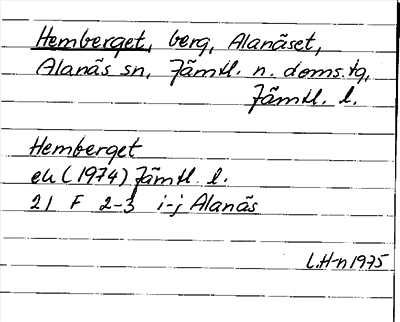 Hemberget, berg, Alanäset,
Alanäs sn, Jämtl. n. doms.tg,
Jämtl. l.
Hemberget
ek (1974) Jämtl. l.
21 F 2-3 i-j Alanäs
L.H-n 1975